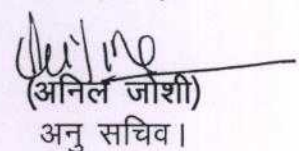 (अनिल जोशी)
अनु सचिव।